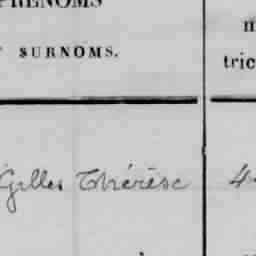 PRENOMS
SURNOMS.
tric
Gilles Thérèse